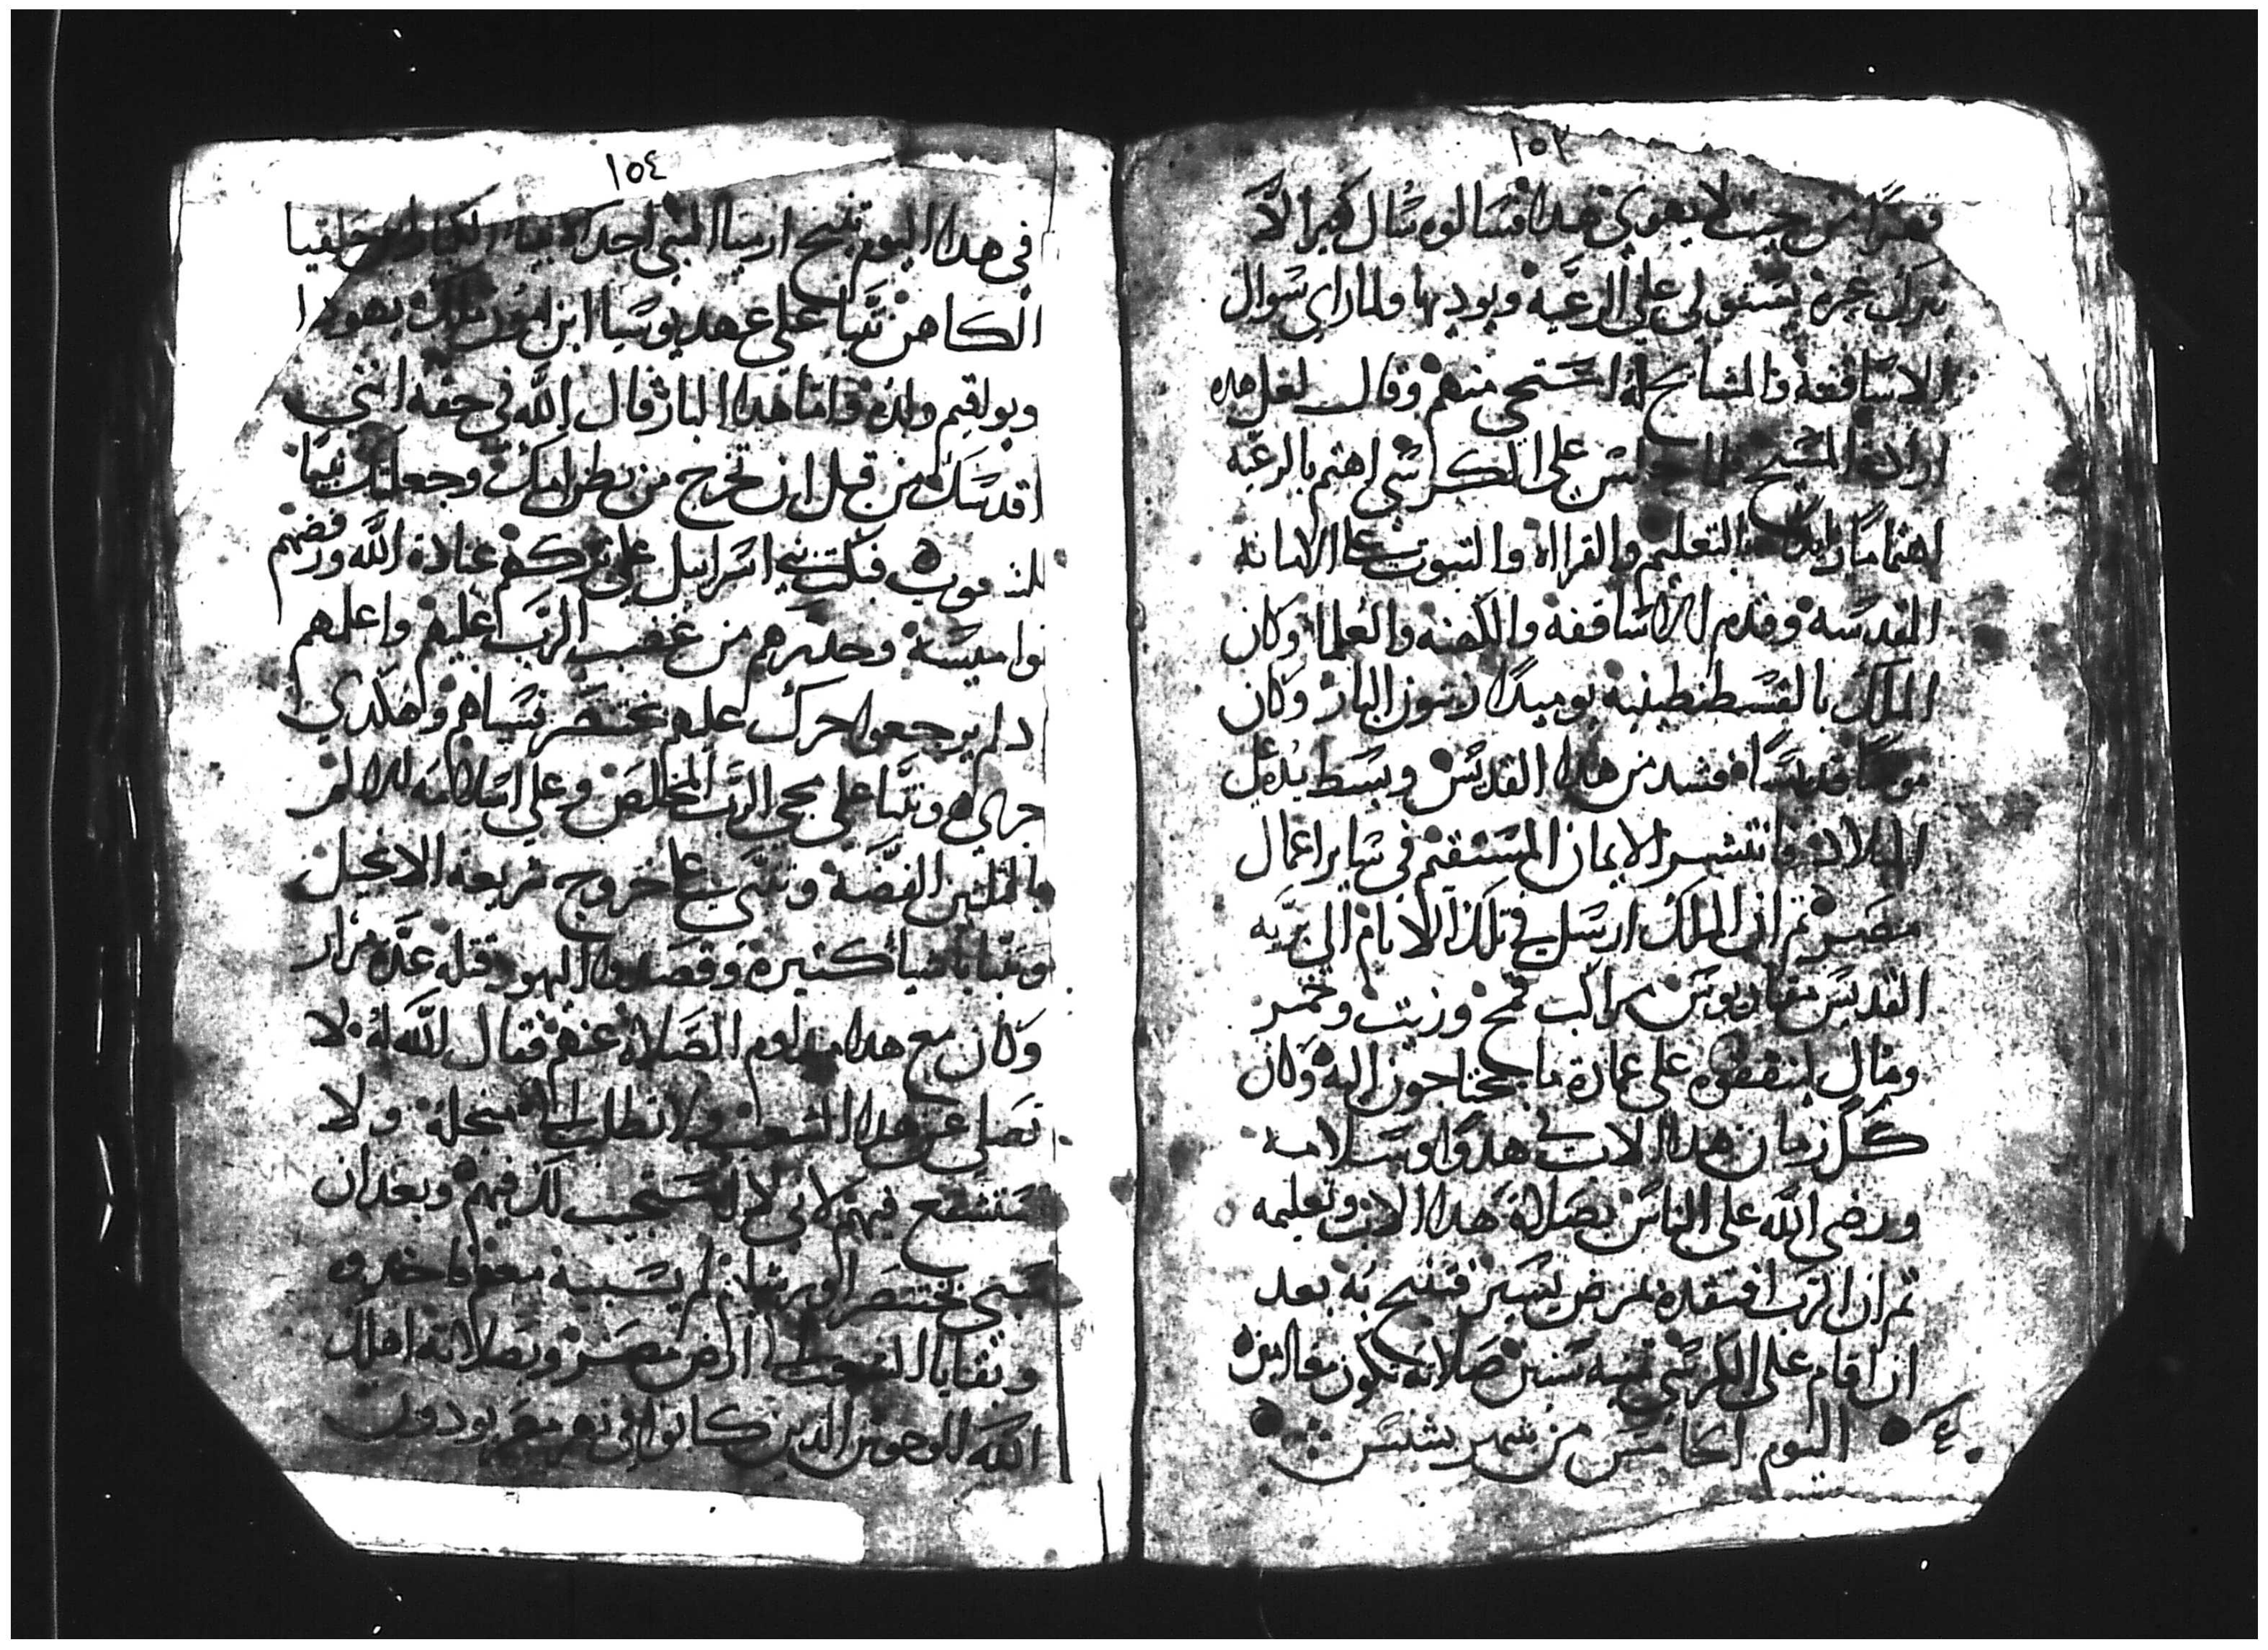 ١٥٣
من حيث لا يهوي هدا فسالوه سال كبير الا
يترك غيره يستولي علي الرعية ويوديها ولما راي سوال
الاساقفة والمشايخ له استحي منهم وقال لعل هده
ارادة المسيح فلما جلس علي الكرسي اهتم بالرعية
اهتماما بالتعليم والقراه والتبوت علي الامانه
المقدسة وقدم الاساقفه والكهنه والعلما وكان
الملك بالقسطنطينية يوميدا زينون البار وكان
مومنا قديسا فشد من هدا القديس وبسط يده علي
البلاد وانتشر الايمان المستقيم في ساير اعمال
مصر ثم ان الملك ارسل في تلك الايام الي برية
القديس مقاريوس مراكب قمح وزيت وخمر
ومال لينفقوه علي عمارة ما يحتاجون اليه وكان
كل زمان هدا الاب في هدو وسلامه
ورضي الله علي الناس بصلاة هدا الاب وتعليمه
ثم ان الرب افتقده بمرض يسير فتنيح به بعد
ان اقام علي الكرسي سنين صلاته تكون معنا امين
اليوم الخامس من شهر بشنس
١٥٤
في هدا اليوم تنيح ارميا النبي احد الانبيا الكبار ابن حلقيا
الكاهن تنبا علي عهد يوسيا ابن امون ملك يهودا
ويواقيم ولده واما هدا البار قال الله في حقه انني
اقدسك من قبل ان تخرج من بطن امك وجعلتك نبيا
للشعوب فبكت بني اسراييل علي تركهم عبادة الله ورفضهم
نواميسه وحدرهم من غضب الرب عليهم واعلمهم
ان لم يرجعوا حرك عليهم بختنصر فسباهم وهكدي
جري وتنبا علي مجي الرب المخلص وعلي اسلامه للالم
بالتلتين الفضة وتنبي علي خروج شريعة الانجيل
وتنبا باشيا كثيرة وقصدوا اليهود قتله عدة مرار
وكان مع هدا مداوم الصلاة عنهم فقال الله له لا
تصلي عن هدا الشعب ولا تطلب الي من اجله ولا
تستشفع فيهم لاني لا استجيب لك فيهم وبعد ان
سبي بختنصر اورشليم لم يسبيه معهم
وبقايا اليهود الي ارض مصر وبصلاته اهلك
الله الوحوش الدين كانوا في نهر مصر يودون